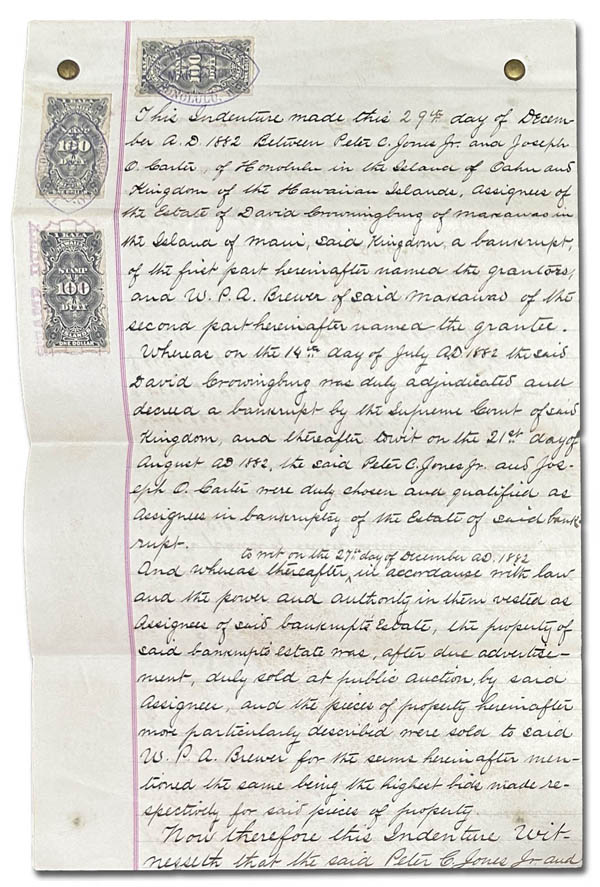 100
HONOLULU
100
DUTY
STAMP DUTY
HAWAII
STAMP
100
DUTY
ISLANDS
ONE DOLLAR
This Indenture made this 29th day of Decem-
ber A.D. 1882 Between Peter C. Jones Jr. and Joseph
O. Carter, of Honolulu in the Island of Oahu and
Kingdom of the Hawaiian Islands, Assignees of
the Estate of David Crowningburg of Makawao in
the Island of Maui, said Kingdom, a bankrupt,
of the first part hereinafter named the grantors,
and W. P. A. Brewer of said Makawao of the
second part hereinafter named the grantee.
Whereas on the 14th day of July A.D. 1882 the said
David Crowningburg was duly adjudicated and
decreed a bankrupt by the Supreme Court of said
Kingdom, and thereafter towit on the 21st day of
August AD 1882, the said Peter C. Jones Jr. and Jos-
eph O. Carter were duly chosen and qualified as
Assignees in bankruptcy of the Estate of said bank-
rupt.
to wit on the 27th day of December A.D. 1882
And whereas thereafter, in accordance with law
and the power and authority in them vested as
Assignees of said bankrupt's Estate, the property of
said bankrupt's estate was, after due advertise-
ment, duly sold at public auction, by said
Assignees, and the pieces of property hereinafter
more particularly described were sold to said
W. P. A. Brewer for the sums hereinafter men-
tioned the same being the highest bids made re-
spectively for said pieces of property
Now therefore this Indenture Wit-
nesseth that the said Peter C. Jones Jr and